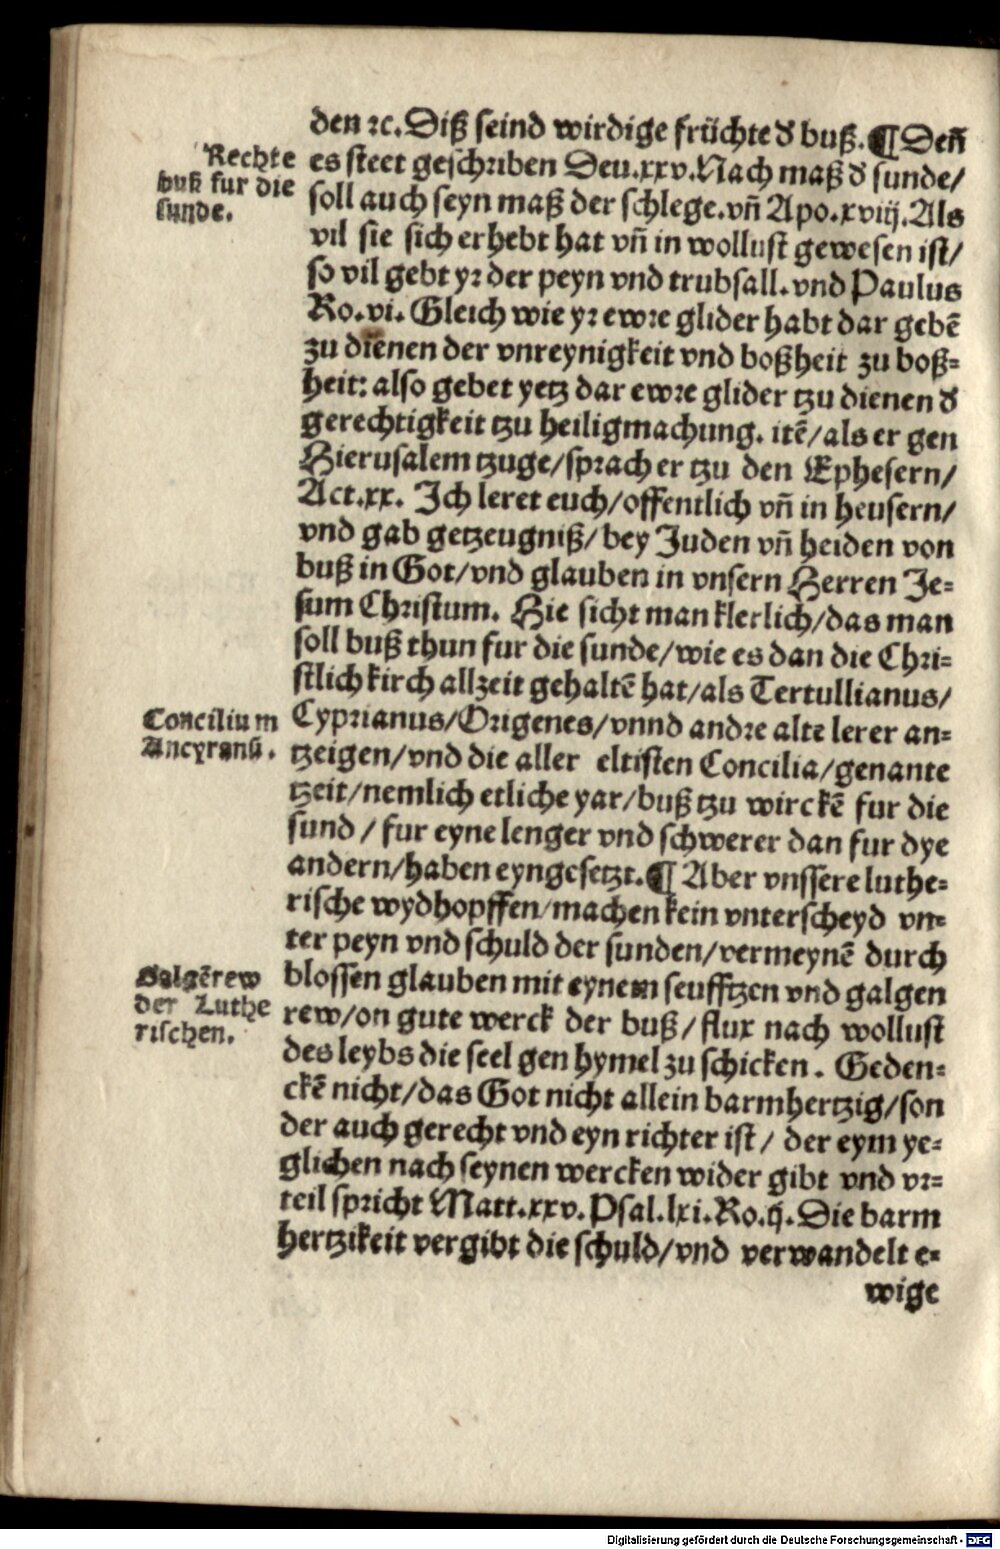 den ⁊c. Diß seind wirdige früchte d̕ buß. ¶ Deñ
Rechte
buß fur die
sunde.
es steet geschriben Deu. xxv. Nach maß d̕ sunde/
soll auch seyn maß der schlege. vñ Apo. xviij. Als
vil sie sich erhebt hat vñ in wollust gewesen ist/
so vil gebt yr der peyn vnd trubsall. vnd Paulus
Ro. vi. Gleich wie yr ewre glider habt dar gebẽ
zu dienen der vnreynigkeit vnd boßheit zu boß-
heit: also gebet yetz dar ewre glider tzu dienen d̕
gerechtigkeit tzu heiligmachung. itẽ/ als er gen
Hierusalem tzuge/ sprach er tzu den Ephesern/
Act. xx. Ich leret euch/ offentlich vñ in heusern/
vnd gab getzeugniß/ bey Juden vñ heiden von
buß in Got/ vnd glauben in vnsern Herren Je-
sum Christum. Hie sicht man klerlich/ das man
soll buß thun fur die sunde/ wie es dan die Chri-
stlich kirch allzeit gehaltẽ hat/ als Tertullianus/
Concilium
Ancyranũ.
Cyprianus/ Origenes/ vnnd andre alte lerer an-
tzeigen/ vnd die aller eltisten Concilia/ genante
tzeit/ nemlich etliche yar/ buß tzu wirckẽ fur die
sund / fur eyne lenger vnd schwerer dan fur dye
andern/ haben eyngesetzt. ¶ Aber vnssere luthe-
rische wydhopffen/ machen kein vnterscheyd vn-
ter peyn vnd schuld der sunden/ vermeynẽ durch
Galgẽrew
der Luthe
rischen.
blossen glauben mit eynem seufftzen vnd galgen
rew/ on gute werck der buß/ flux nach wollust
des leybs die seel gen hymel zu schicken. Geden-
ckẽ nicht/ das Got nicht allein barmhertzig/ son
der auch gerecht vnd eyn richter ist/ der eym ye-
glichen nach seynen wercken wider gibt vnd vr-
teil spricht Matt. xxv. Psal. lxi. Ro. ij. Die barm
hertzikeit vergibt die schuld/ vnd verwandelt e-
wige
Digitalisierung gefördert durch die Deutsche Forschungsgemeinschaft - DFG